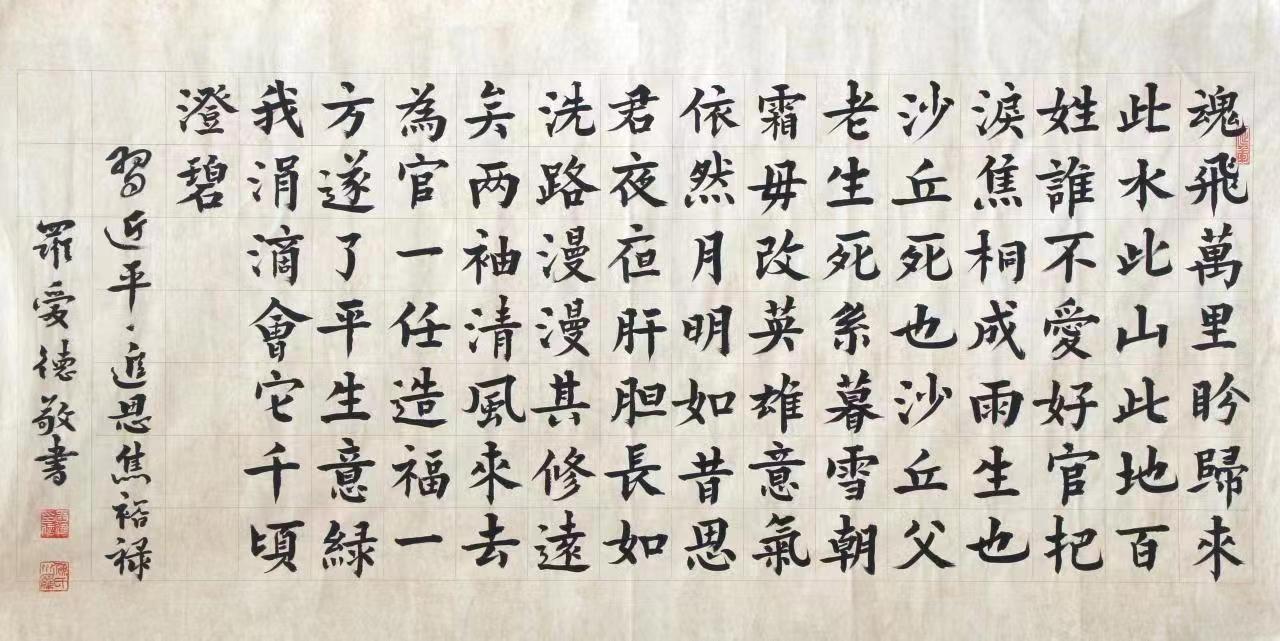 魂飛萬里盻歸來
此水此山此地百
姓誰不愛好官把
淚焦桐成雨生也
沙丘死也沙丘父
老生死系暮雪朝
霜毋改英雄意氣
依然月明如昔思
君夜夜肝胆長如
洗路漫漫其修遠
矣两袖清風來去
為官一任造福一
方遂了平生意緑
我涓滴會它千頃
澄碧
習近平、追思焦裕禄
羅愛德敬書